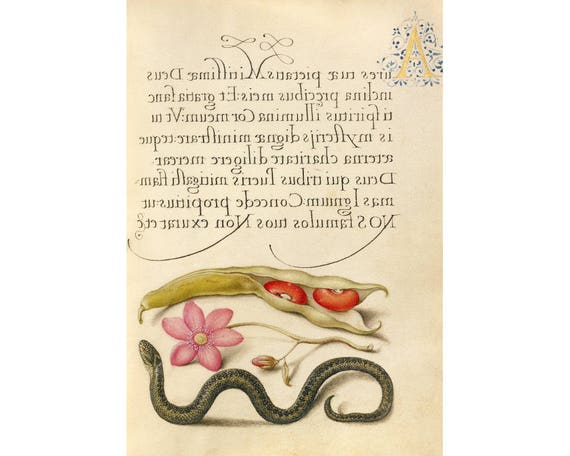 Aures tuæ pietatis Mitissimæ Deus
inclina precibus meis: Et gratia sanc
ti spiritus illumina Cor meum: Vt tu
is mysterijs dignæ ministrare: teque
æterna charitate diligere merear
Deus qui tribus Pueris mitigasti flam=
mas Ignium: Concede propitius: ut
NOS famulos tuos Non exurat etc̃